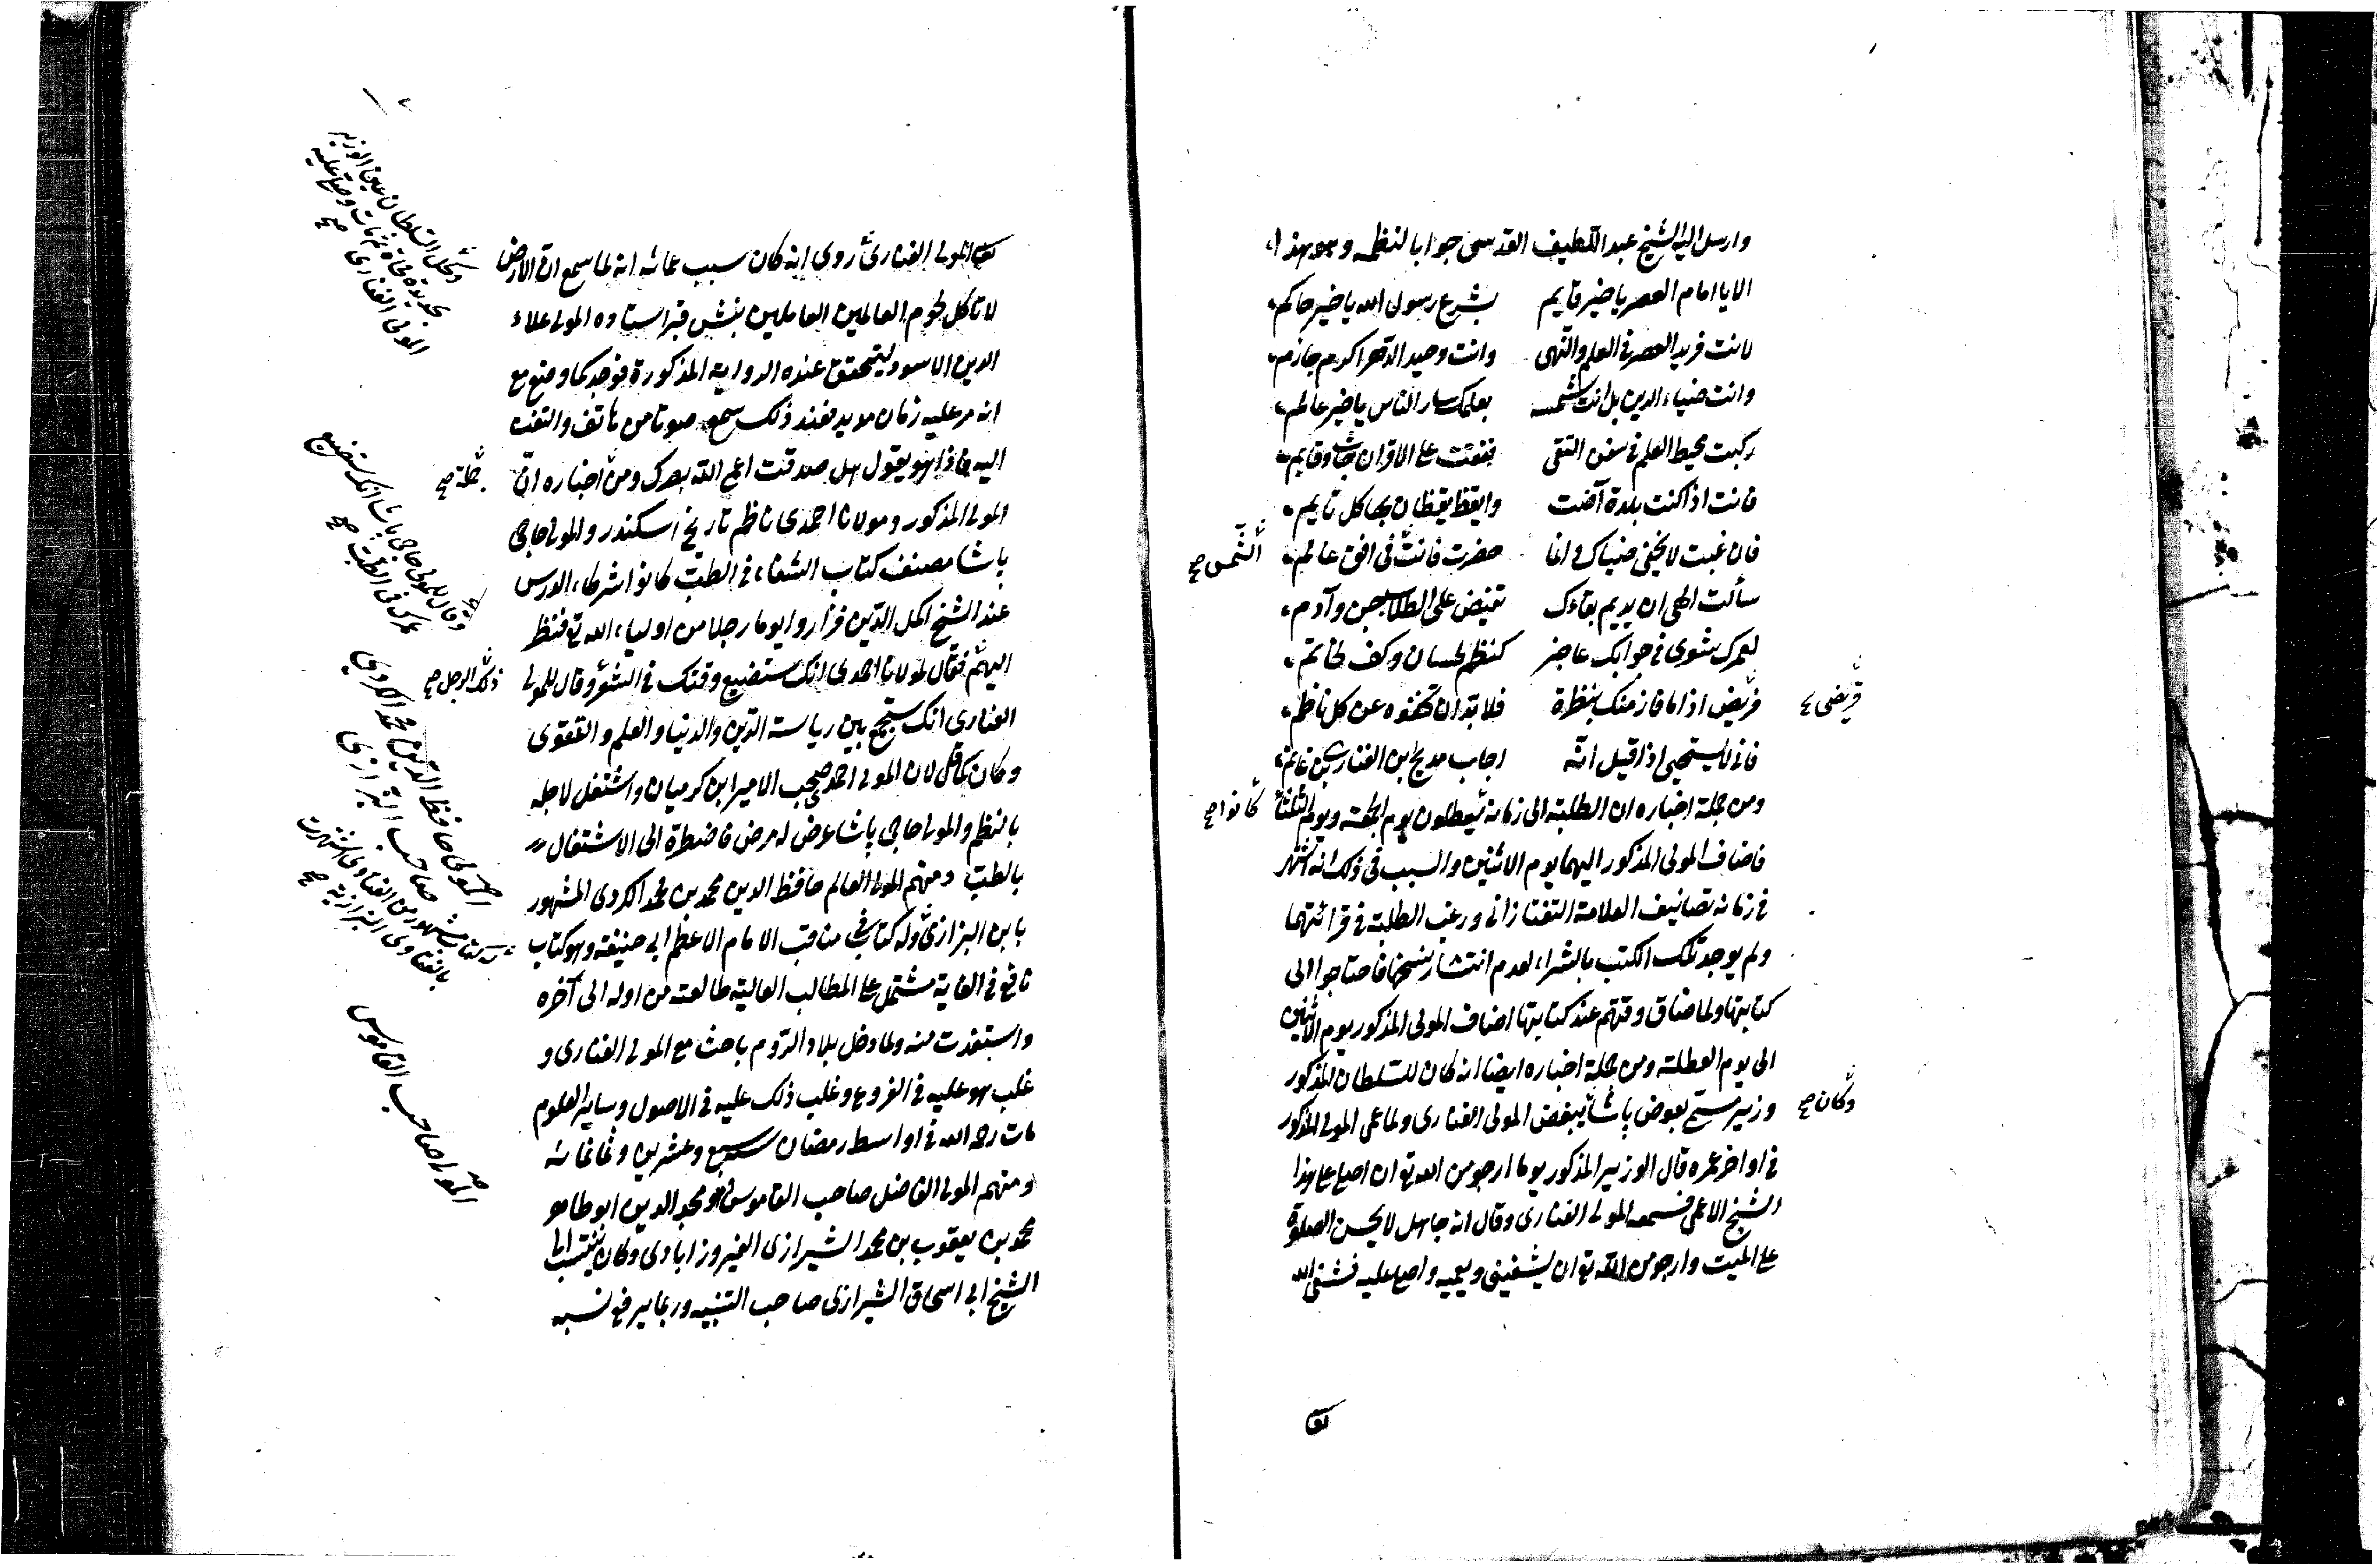 وارسل اليه الشيخ عبد اللطيف القدسى جوابا لنظمه وهو هذا
الا يا امام العصر يا خير قايم بشرع رسول الله يا خير حاكم
لانت فريد العصر فى العلم والنهى وانت وحيد الدهر اكرم حازم
وانت ضياء الدين بل انت شمسه بعلمك سار الناس يا خير عالم
ركبت محيط العلم فى سفن التقى ففقت على الاقران وقايم
فانت اذا كنت ببلدة آضت وايقظ يقظان بها كل نايم
فان غبت لا يخفى ضياك وانما حضرت فانت فى افق عالم
الشمس صح
سألت الهى ان يديم بقاءك تفيض على الطلاب جن وآدم
لعمرك شعرى فى جوابك عاجز كنظم لحسان وكف لخاتم
قريض اذا ما فاز منك بنظرة فلا بد ان تكفوه عن كل ناظم
قريضى
فانى لاستحيى اذا قيل انه اجاب مديح ابن الفنارى بن غانم
ومن جملة اخباره ان الطلبة الى زمانه يعطلون يوم الجمعة ويوم الثلثا
كانوا صح
فاضاف المولى المذكور اليهما يوم الاثنين والسبب فى ذلك انه اشتهر
فى زمانه تصانيف العلامة التفتازانى ورغب الطلبة فى قرائتها
ولم يوجد تلك الكتب بالشراء لعدم انتشار نسخها فاحتاجوا الى
كتابتها ولما ضاق وقتهم عند كتابتها اضاف المولى المذكور يوم الاثنين
الى يوم العطلة ومن جملة اخباره ايضا انه كان للسلطان المذكور
وزير مسمى بعوض پاشا يبغض المولى الفنارى ولما عمى المولى المذكور
وكان صح
فى اواخر عمره قال الوزير المذكور يوما ارجو من الله تع ان اصلى على هذا
الشيخ الاعمى فسمعه المولى الفنارى وقال انه جاهل لا يحسن الصلوة
على الميت وارجو من الله تع ان يشفينى ويعميه واصلى عليه فشفى الله
تع المولى الفنارى روى انه كان سبب عمائه انه لما سمع ان الارض
لا تاكل لحوم العالمين العاملين نبش قبر استاذه المولى علاء
الدين الاسود ليتحقق عنده الرواية المذكورة فوجده كما وضع مع
انه مر عليه زمان مديد فعند ذلك سمع صوتا من هاتف والتفت
اليه فاذا هو يقول هل صدقت اعمى الله بصرك ومن اخباره ان
جملة صح
المولى المذكور ومولانا احمدى ناظم تاريخ اسكندر والمولى حاجى
پاشا مصنف كتاب الشفاء فى الطب كانوا شركاء الدرس
عند الشيخ اكمل الدين فزاروا يوما رجلا من اولياء الله تع فنظر
اليهم فقال لمولانا احمدى انك ستضيع وقتك فى الشعر وقال للمولى
ذلك الرجل صح
الفنارى انك ستجمع بين رياسة الدين والدنيا والعلم والتقوى
وكان كما قال لان المولى احمدى صحب الامير ابن كرميان واشتغل لاجله
بالنظم والمولى حاجى پاشا عرض له مرض فاضطره الى الاشتغال
بالطب ومنهم المولى العالم حافظ الدين محمد بن محمد الكردى المشهور
بابن البزازى وله كتاب فى مناقب الامام الاعظم ابى حنيفة وهو كتاب
نافع فى الغاية مشتمل على المطالب العالية طالعته من اوله الى آخره
واستفدت منه ولما دخل بلاد الروم باحث مع المولى الفنارى و
غلب هو عليه فى الفروع وغلب ذلك عليه فى الاصول وساير العلوم
مات رحمه الله فى اواسط رمضان سبع وعشرين وثمانمائه
ومنهم المولى الفاضل صاحب القاموس هو مجد الدين ابو طاهر
محمد بن يعقوب بن محمد الشيرازى الفيروزابادى وكان ينتسب الى
الشيخ ابى اسحاق الشيرازى صاحب التنبيه وربما يرفع نسبه
وكحل السلطان عين الوزير
بحديدة محماة ثم مات وصلى عليه
المولى الفنارى صح
وقال للمولى حاجى پاشا انك ستضيع
عمرك فى الطب صح
المولى حافظ الدين محمد الكردى
صاحب البزازى
له كتاب مشهور من الفتاوى اشتهرت
بالفتاوى البزازية صح
المولى صاحب القاموس
تع